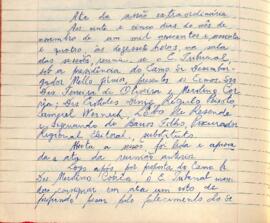 Ata da sessão extraordinária
Aos vinte e cinco dias do mês de
novembro de um mil novecentos e sessenta
e quatro, às dezesseis horas, na sala
das sessões, reuniu-se o E. Tribunal
sob a presidência do Exmo Sr. Desembar-
gador Mello presentes os Exmos Srs.
Drs. Ferreira de Oliveira e Merolino Cor-
rêa; Drs. Aristides
Samuel Werneck, Lobo de Resende
e de Barros Filho, Procurador
Regional Eleitoral, substituto.
Aberta a sessão, foi lida e aprova-
da a ata da reunião anterior.
Logo após por proposta do Exmo Sr
Des. Merolino Corrêa, o E. Tribunal man-
dou consignar em ata um voto de
profundo pesar pelo falecimento do Sr